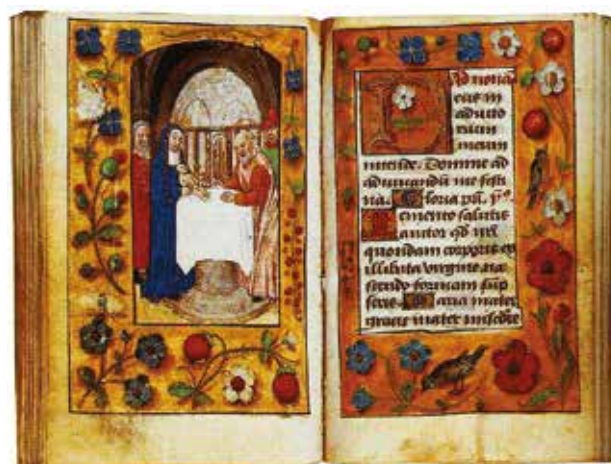 Ad nonā
Deus in
adiuto
rium
meum
intende. Domine ad
adiuuandū me festi
na. Gloria
Memento salutis
auctor qd
quondam corporis ex
illibata virgine na
scendo formam sūp
seris. Maria mater
gracie mater